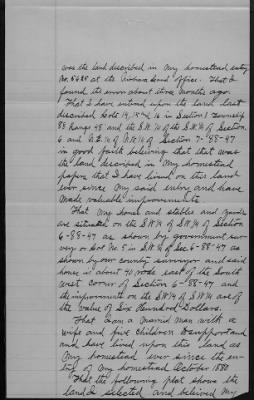 was the land described in my homestead entry
No. 5628 at the land office. That I
found its error about three months ago.
That I have entered upon the land last
described Lots 14, 15 & 16 in Section 1 Township
88 Range 48 and the S.W. 1/4 of the S.W. 1/4 of Section
6 and N.W. 1/4 of N.W. 1/4 of Section 7-88-47
in good faith believing that that was
the land described in my homestead
papers, that I have lived on this land
ever since my said entry and have
made valuable improvements
That my house and stables and goods
are situated on the S.W. 1/4 of S.W. 1/4 of Section
6-88-47 as shown by government sur-
vey or Lot No. 5 in S.W. 1/4 of Sec. 6-88-47 as
shown by our county surveyor and said
house is about 40 rods east of the South
west corner of Section 6-88-47 and
the improvements on the S.W. 1/4 of S.W. 1/4 are of
the value of Six Hundred Dollars.
That I am a married man with a
wife and five children to support and
and have lived upon this land as
my homestead ever since the en-
try of my homestead October 1880
That the following plat shows the
land I selected and believed my